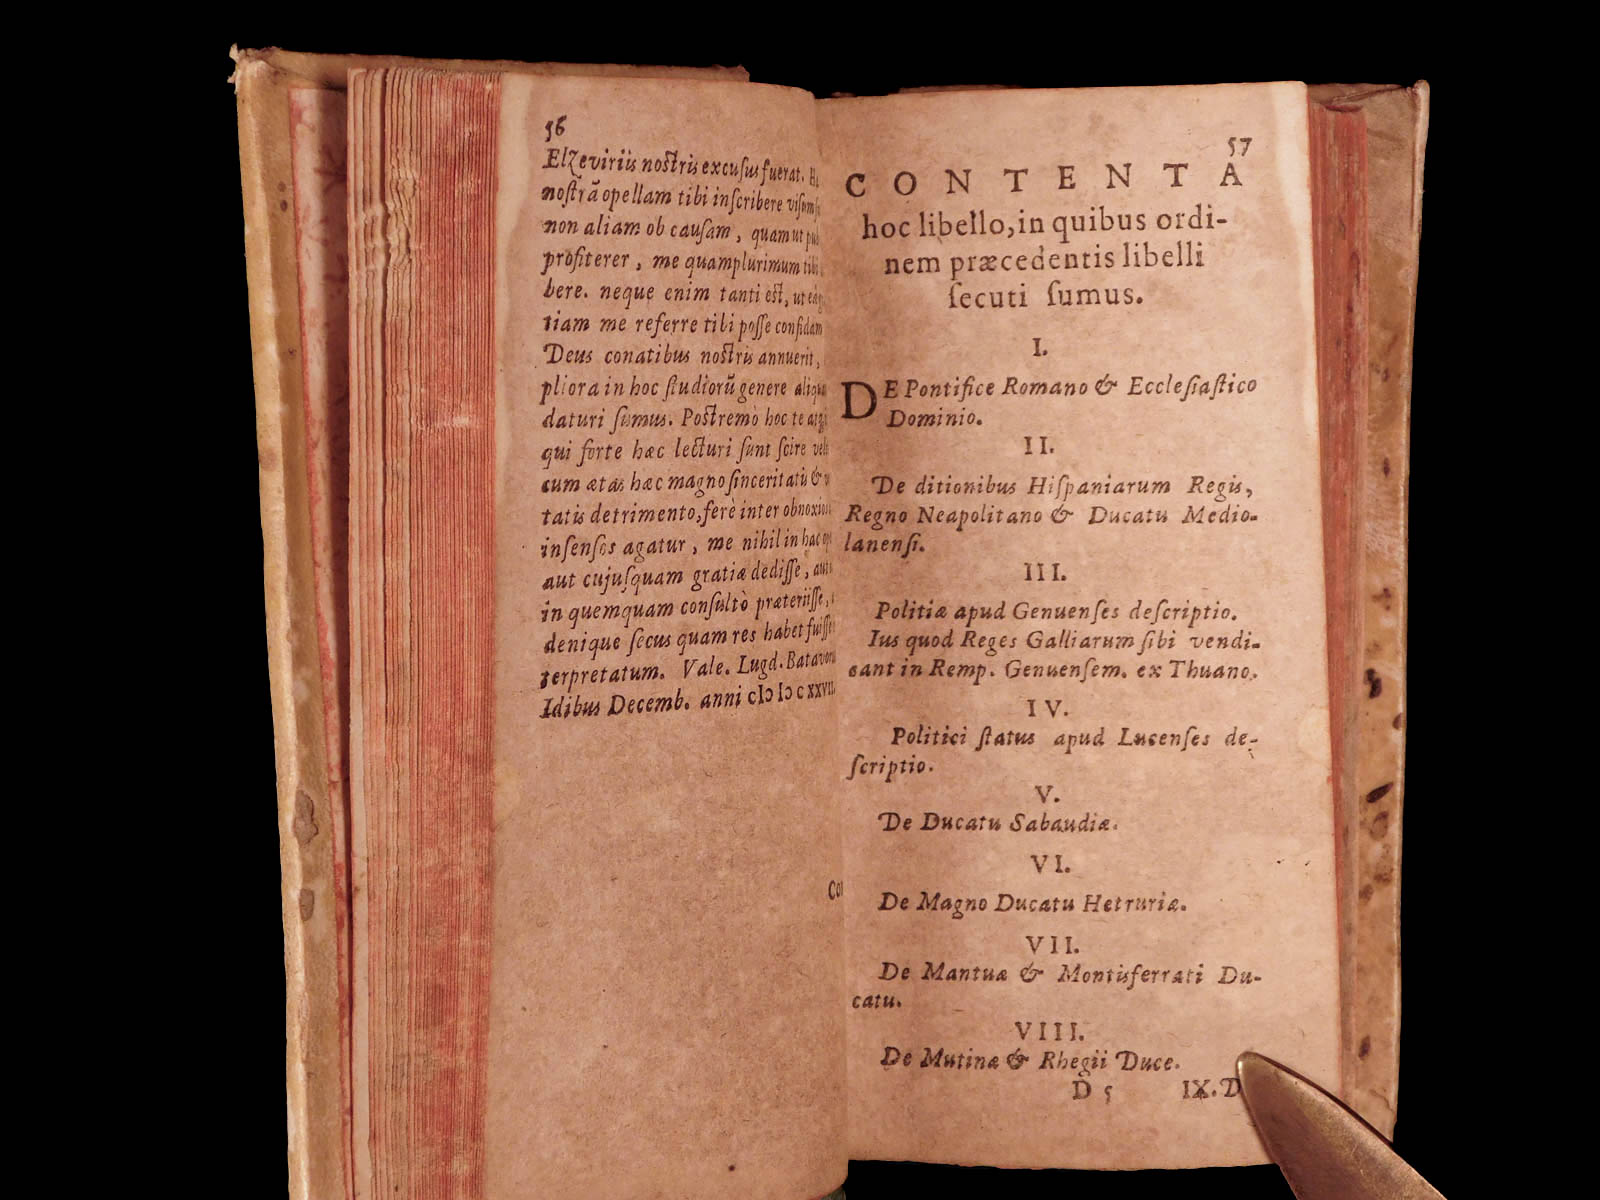 56
Elzeviriis nostris excuſus fuerat.
noſtrā opellam tibi inſcribere
non aliam ob cauſam, quam ut
profiterer, me quamplurimum
bere. neque enim tanti est,
tiam me referre tibi poſſe
Deus conatibus nostris annuerit,
pliora in hoc ſtudiorū genere
daturi ſumus. Postremò hoc te
qui forte hæc lecturi ſunt ſcire
cum ætas hæc magno ſinceritatis &
tatis detrimento, ferè inter
inſenſos agatur, me nihil in hac
aut cujuſquam gratiæ dediſſe,
in quemquam conſultò præteriiſſe,
denique ſecus quam res habet
terpretatum. Vale. Lugd.
Idibus Decemb. anni
57
CONTENTA
hoc libello, in quibus ordi-
nem præcedentis libelli
ſecuti ſumus.
I.
DE Pontifice Romano & Eccleſiaſtico
Dominio.
II.
De ditionibus Hiſpaniarum Regis,
Regno Neapolitano & Ducatu Medio-
lanenſi.
III.
Politiæ apud Genuenſes deſcriptio.
Ius quod Reges Galliarum ſibi vendi-
cant in Remp. Genuenſem. ex Thuano.
IV.
Politici ſtatus apud Lucenſes de-
ſcriptio.
V.
De Ducatu Sabaudiæ.
VI.
De Magno Ducatu Hetruriæ.
VII.
De Mantuæ & Montisferrati Du-
catu.
VIII.
De Mutinæ & Rhegii Duce.
D 5 IX. D